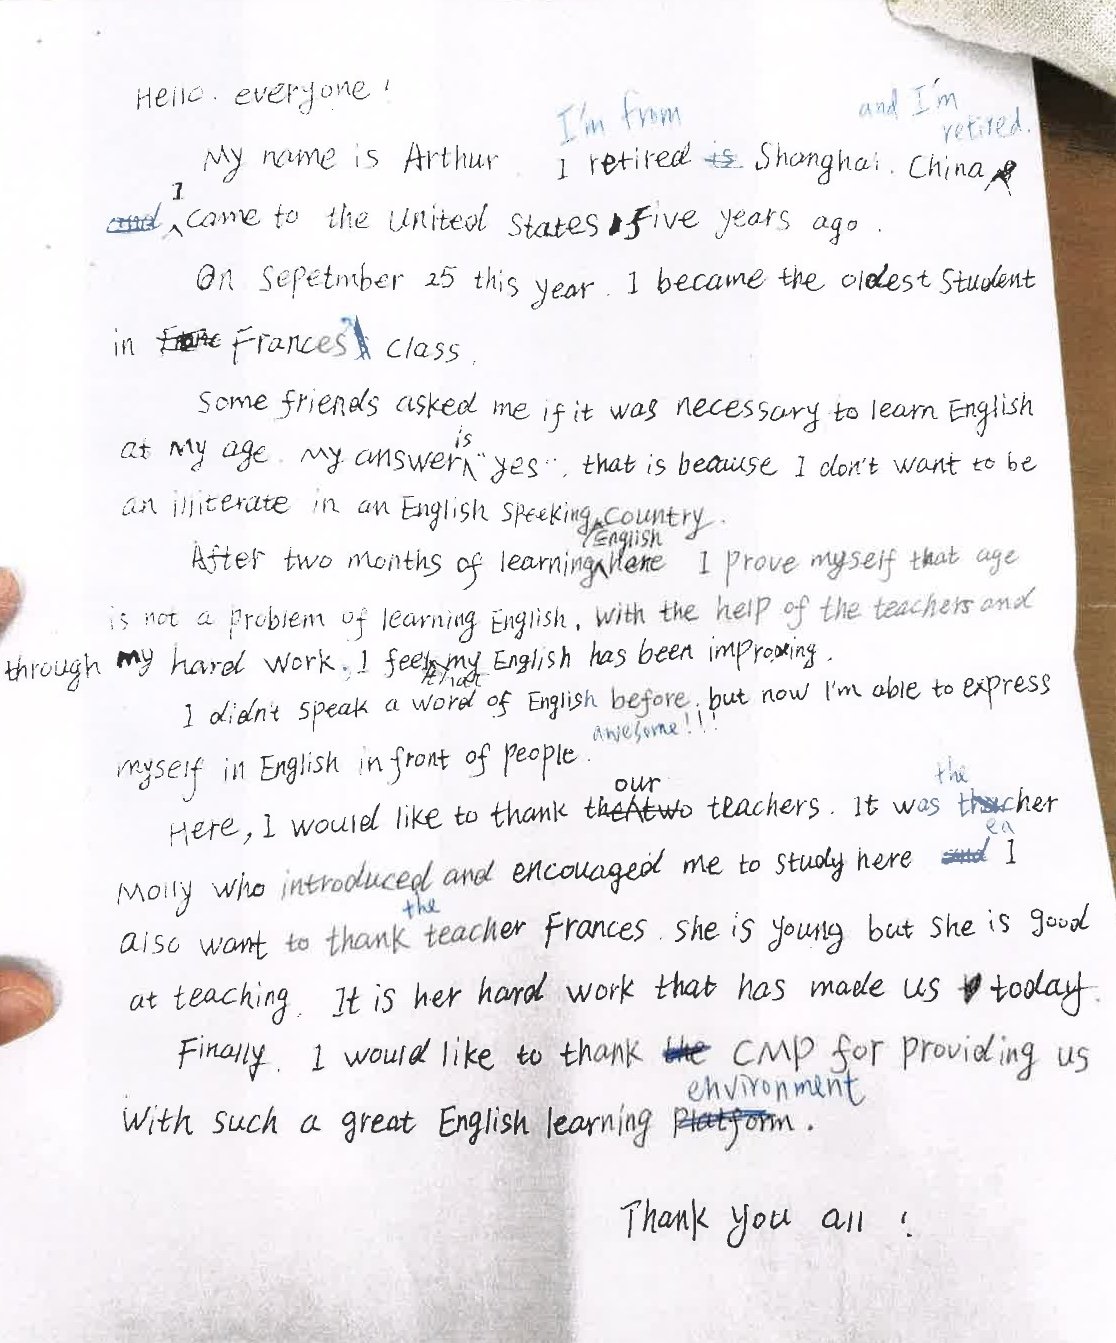 Hello. everyone!
I'm from and I'm retired.
My name is Arthur I retired is Shanghai. China
and I came to the United States five years ago.
On Sepetmber 25 this year. I became the oldest Student
in Frances' class.
Some friends asked me if it was necessary to learn English
at My age. My answer is "yes". that is because I don't want to be
an illiterate in an English speeking country.
After two months of learning English here I prove myself that age
is not a problem of learning English, with the help of the teachers and
through my hard work. I feel that my English has been improving.
I didn't speak a word of English before, but now I'm able to express
awesome!!!
myself in English in front of people.
Here, I would like to thank the two our teachers. It was the teacher
Molly who introduced and encouaged me to study here and I
also want to thank the teacher Frances. She is young but she is good
at teaching. It is her hard work that has made us today.
Finally. I would like to thank the CMP for providing us
with such a great English learning platform environment.
Thank you all!